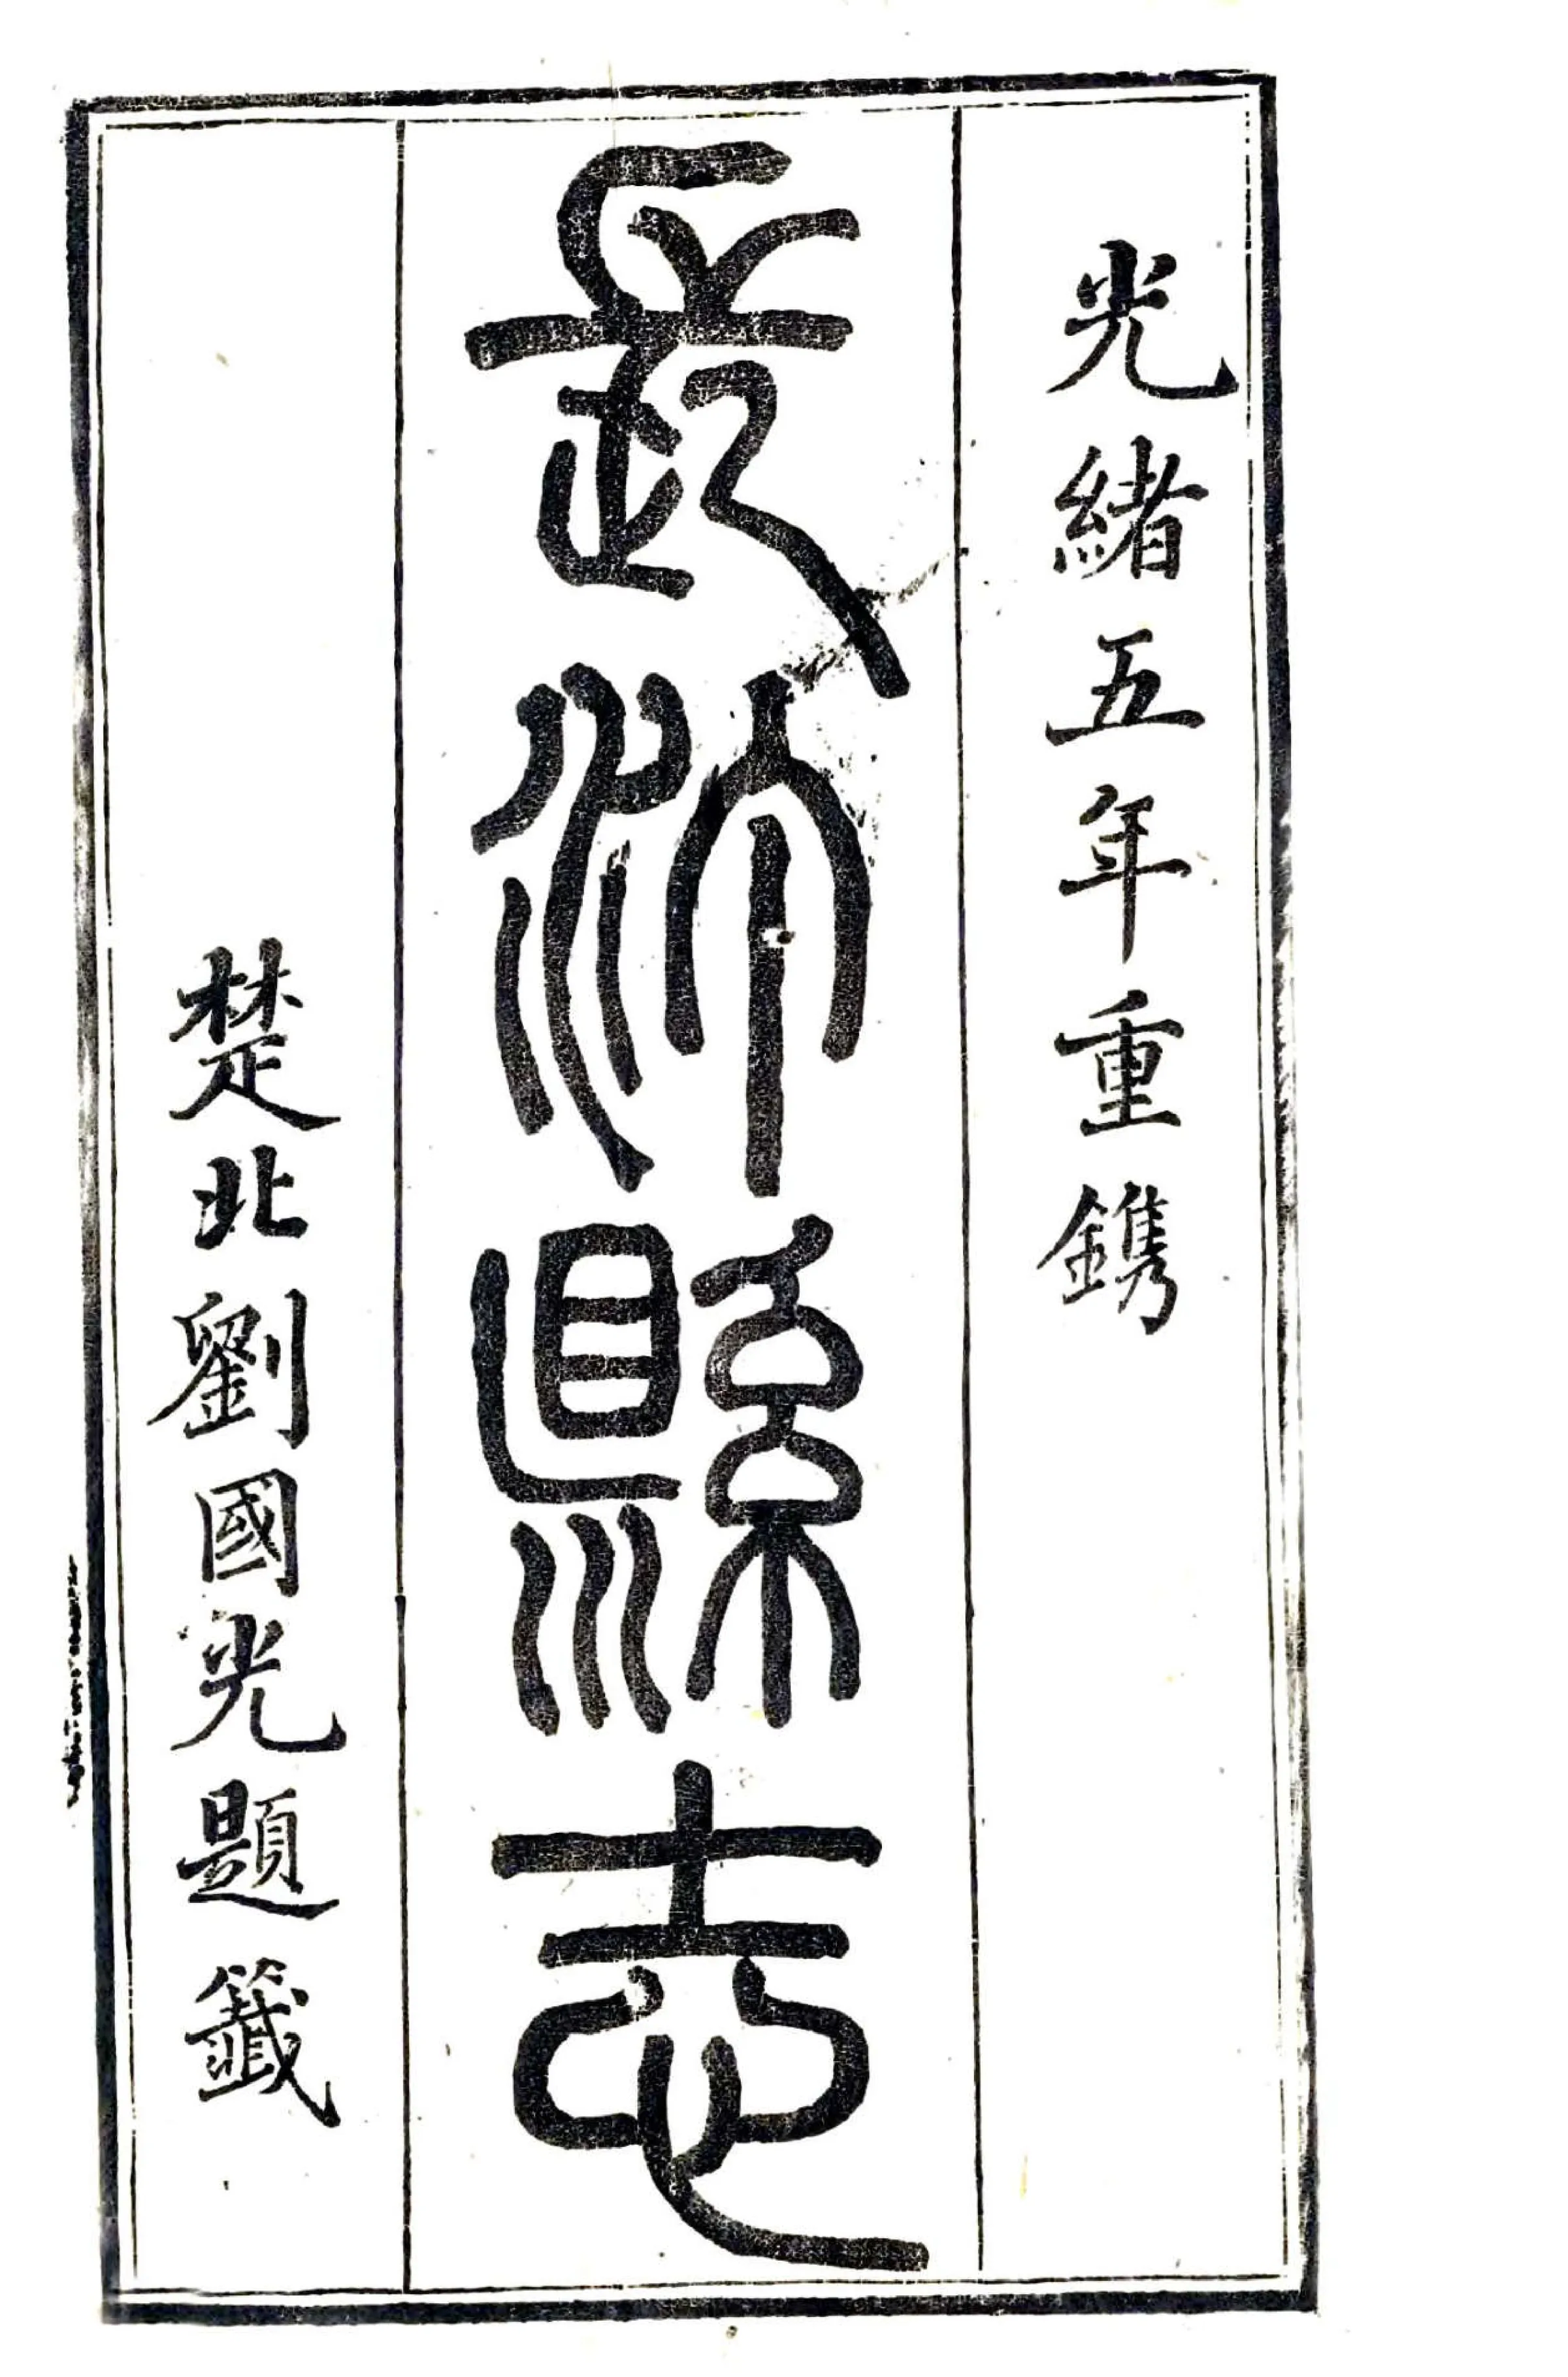 光緒五年重鐫
長汀縣志
楚北劉國光題籤